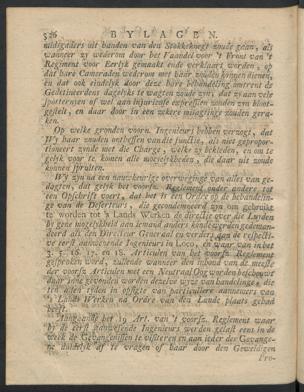 326 BYLAGEN.
misdigaders uit handen van den Stokkeknegt zoude gaan, als
wanneer zy wederom door het Vaandel voor 't Front van 't
Regiment voor Eerlyk gemaakt ende verklaart worden, op
dat hare Cameraden wederom met haar zouden konnen dienen,
en dat ook eindelyk door deze hare behandeling omtrent de
Gedetineerdens dagelyks te wagten zoude zyn, dat zy aan vele
spotternyen of wel aan injurieuse expressien zouden zyn bloot-
gestelt, en daar door in een zekere misagtinge zouden gera-
ken.
Op welke gronden voorn. Ingenieurs hebben verzogt, dat
Wy haar zouden ontheffen van die functie, als niet gepropor-
tioneert zynde met die Charge, welke zy bekleden, en om te
gelyk voor te komen alle moeijelykheden, die daar uit zoude
konnen spruiten.
Wy zyn na een nauwkeurige overweginge van alles van ge-
dagten, dat gelyk het voorsz. Reglement onder andere tot
een Opschrift voert, dat het is een Ordre op de behandelin-
ge van de Deserteurs, die gecondemneert zyn om gebruikt
te worden tot 's Lands Werken de directie over die Luyden
by gene mogelykheid aan iemand anders konde werden gedeman-
deert als den Directeur Generaal en verders aan de respecti-
ve eerst aanwesende Ingenieurs in Loco, en waar van in het
3. 5. 16. 17. en 18. Articulen van het voorsz. Reglement
gesproken word, zullende wanneer den inhoud van de meeste
der voorsz Articulen met een Neutraal Oog worden beschouwt
daar inne gevonden worden dezelve wyze van handelinge, die
ten allen tyden in opsigte van particuliere aannemers van
's Lands Werken na Ordre van den Lande plaats gehad
heeft.
Aangaande het 19 Art. van 't voorsz. Reglement waar
by de eerst aanwesende Ingenieurs werden gelast eens in de
week de Gevangenissen te visiteren en aan ieder der Gevange-
ne duidelyk af te vragen of haar door den Geweldigen
Pro-